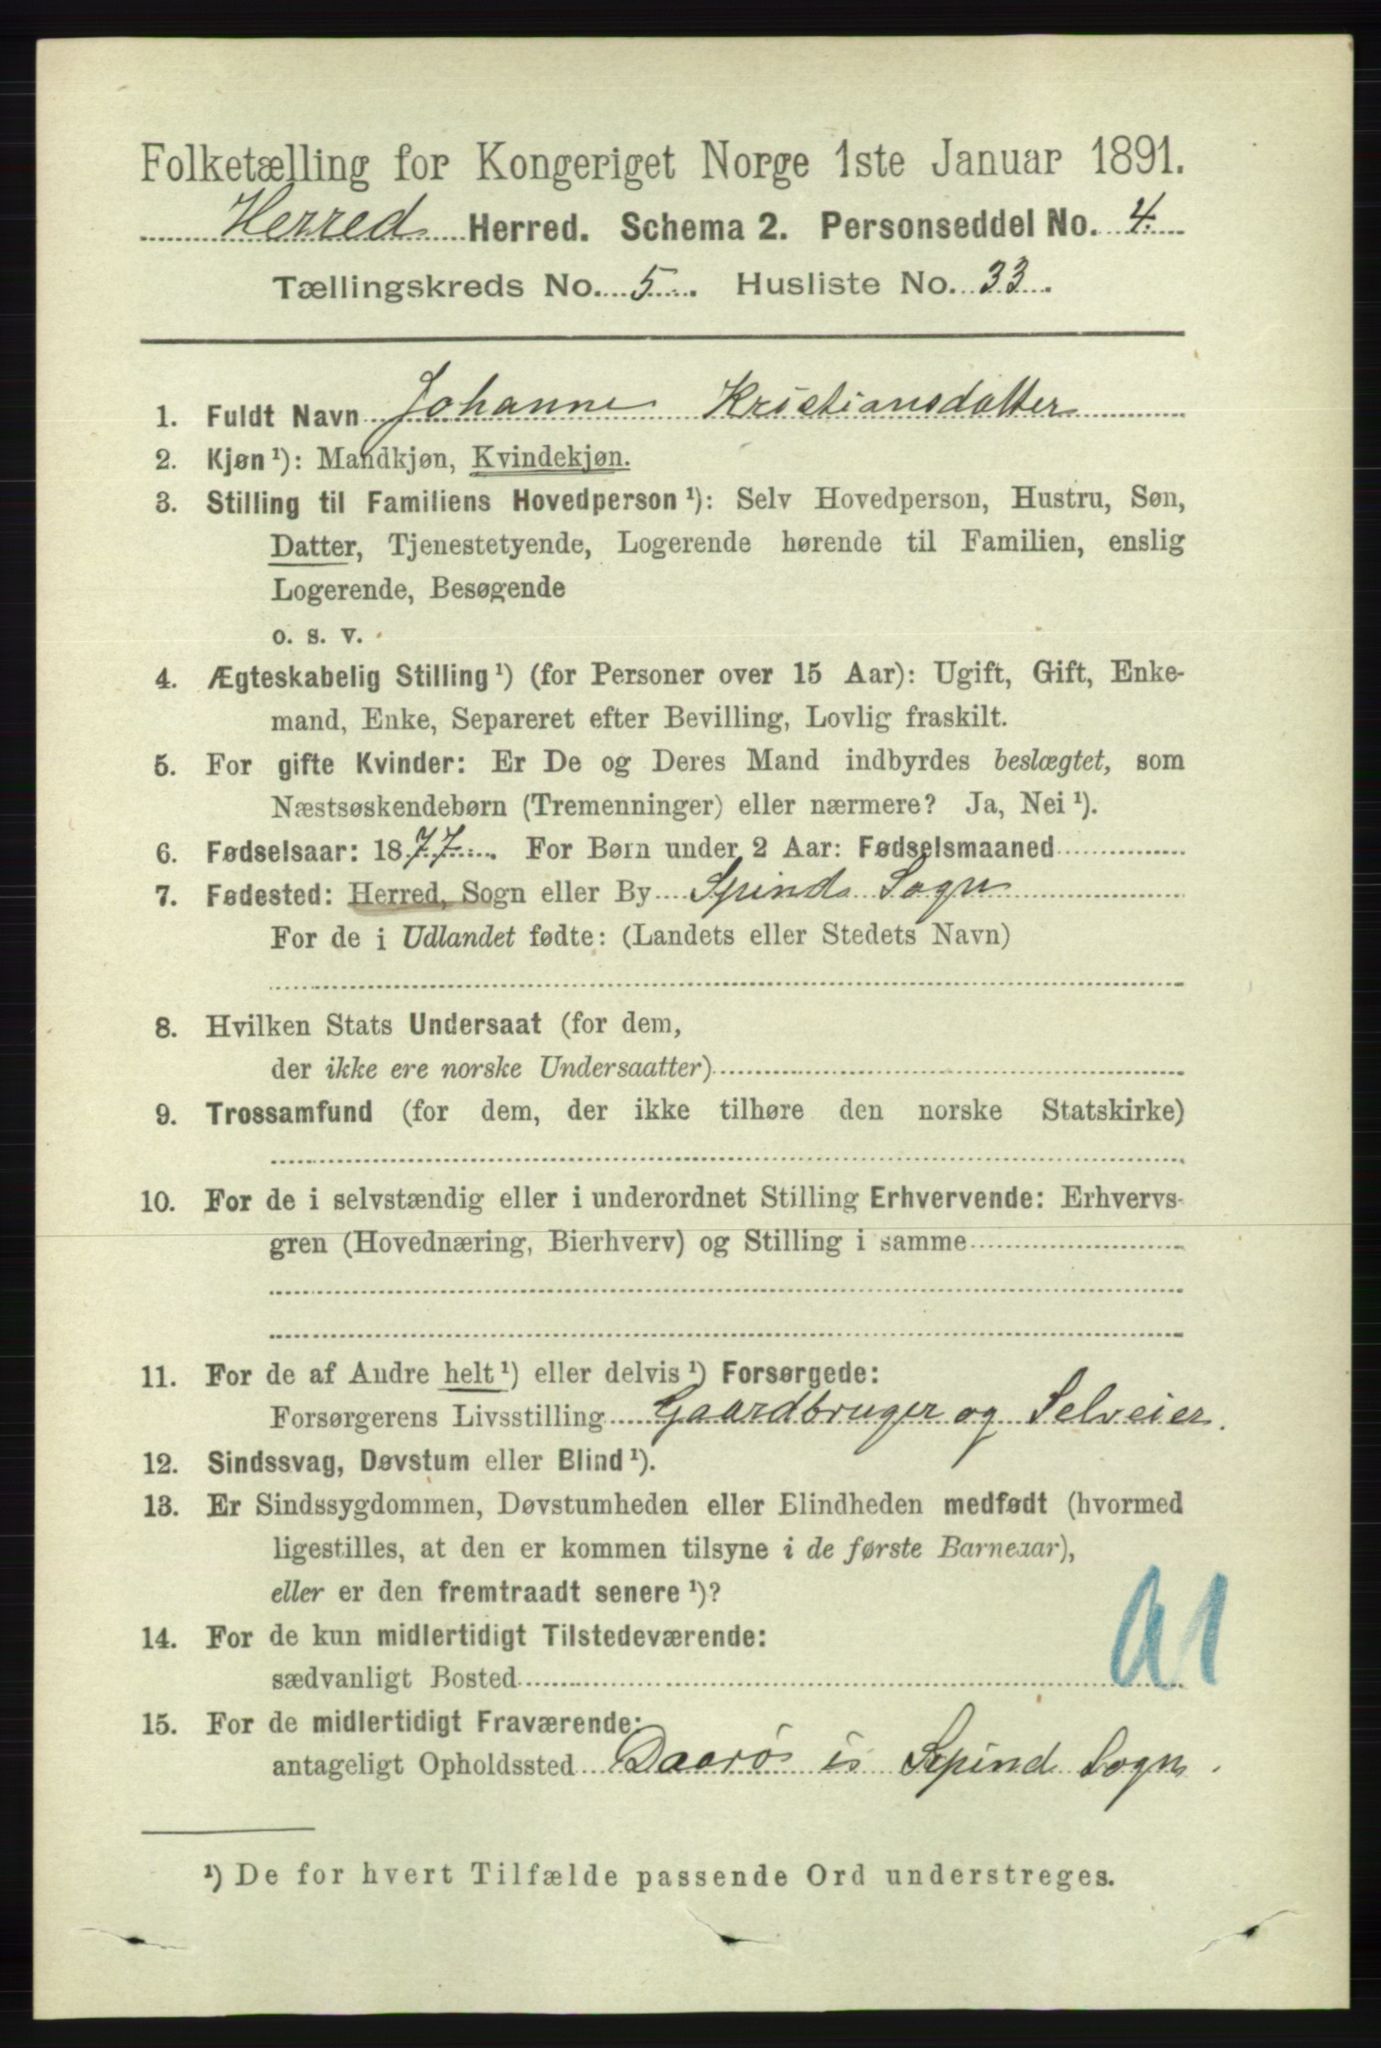 Folketælling for Kongeriget Norge 1ste Januar 1891.
Herred Herred. Schema 2. Personseddel No. 4.
Tællingskreds No. 5. Husliste No. 33.
1. Fuldt Navn Johanne Kristiansdatter
2. Kjøn¹): Mandkjøn, Kvindekjøn.
3. Stilling til Familiens Hovedperson¹): Selv Hovedperson, Hustru, Søn,
Datter, Tjenestetyende, Logerende hørende til Familien, enslig
Logerende, Besøgende
o. s. v.
4. Ægteskabelig Stilling¹) (for Personer over 15 Aar): Ugift, Gift, Enke-
mand, Enke, Separeret efter Bevilling, Lovlig fraskilt.
5. For gifte Kvinder: Er De og Deres Mand indbyrdes beslægtet, som
Næstsøskendebørn (Tremenninger) eller nærmere? Ja, Nei¹).
6. Fødselsaar: 1877. For Børn under 2 Aar: Fødselsmaaned
7. Fødested: Herred, Sogn eller By Spind Sogn
For de i Udlandet fødte: (Landets eller Stedets Navn)
8. Hvilken Stats Undersaat (for dem,
der ikke ere norske Undersaatter)
9. Trossamfund (for dem, der ikke tilhøre den norske Statskirke)
10. For de i selvstændig eller i underordnet Stilling Erhvervende: Erhvervs-
gren (Hovednæring, Bierhverv) og Stilling i samme
11. For de af Andre helt¹) eller delvis¹) Forsørgede:
Forsørgerens Livsstilling Gaardbruger og Selveier.
12. Sindssvag, Døvstum eller Blind¹).
13. Er Sindssygdommen, Døvstumheden eller Blindheden medfødt (hvormed
ligestilles, at den er kommen tilsyne i de første Barneaar),
eller er den fremtraadt senere¹)?
14. For de kun midlertidigt Tilstedeværende:
sædvanligt Bosted
a1
15. For de midlertidigt Fraværende:
antageligt Opholdssted Daarø i Spind Sogn.
¹) De for hvert Tilfælde passende Ord understreges.